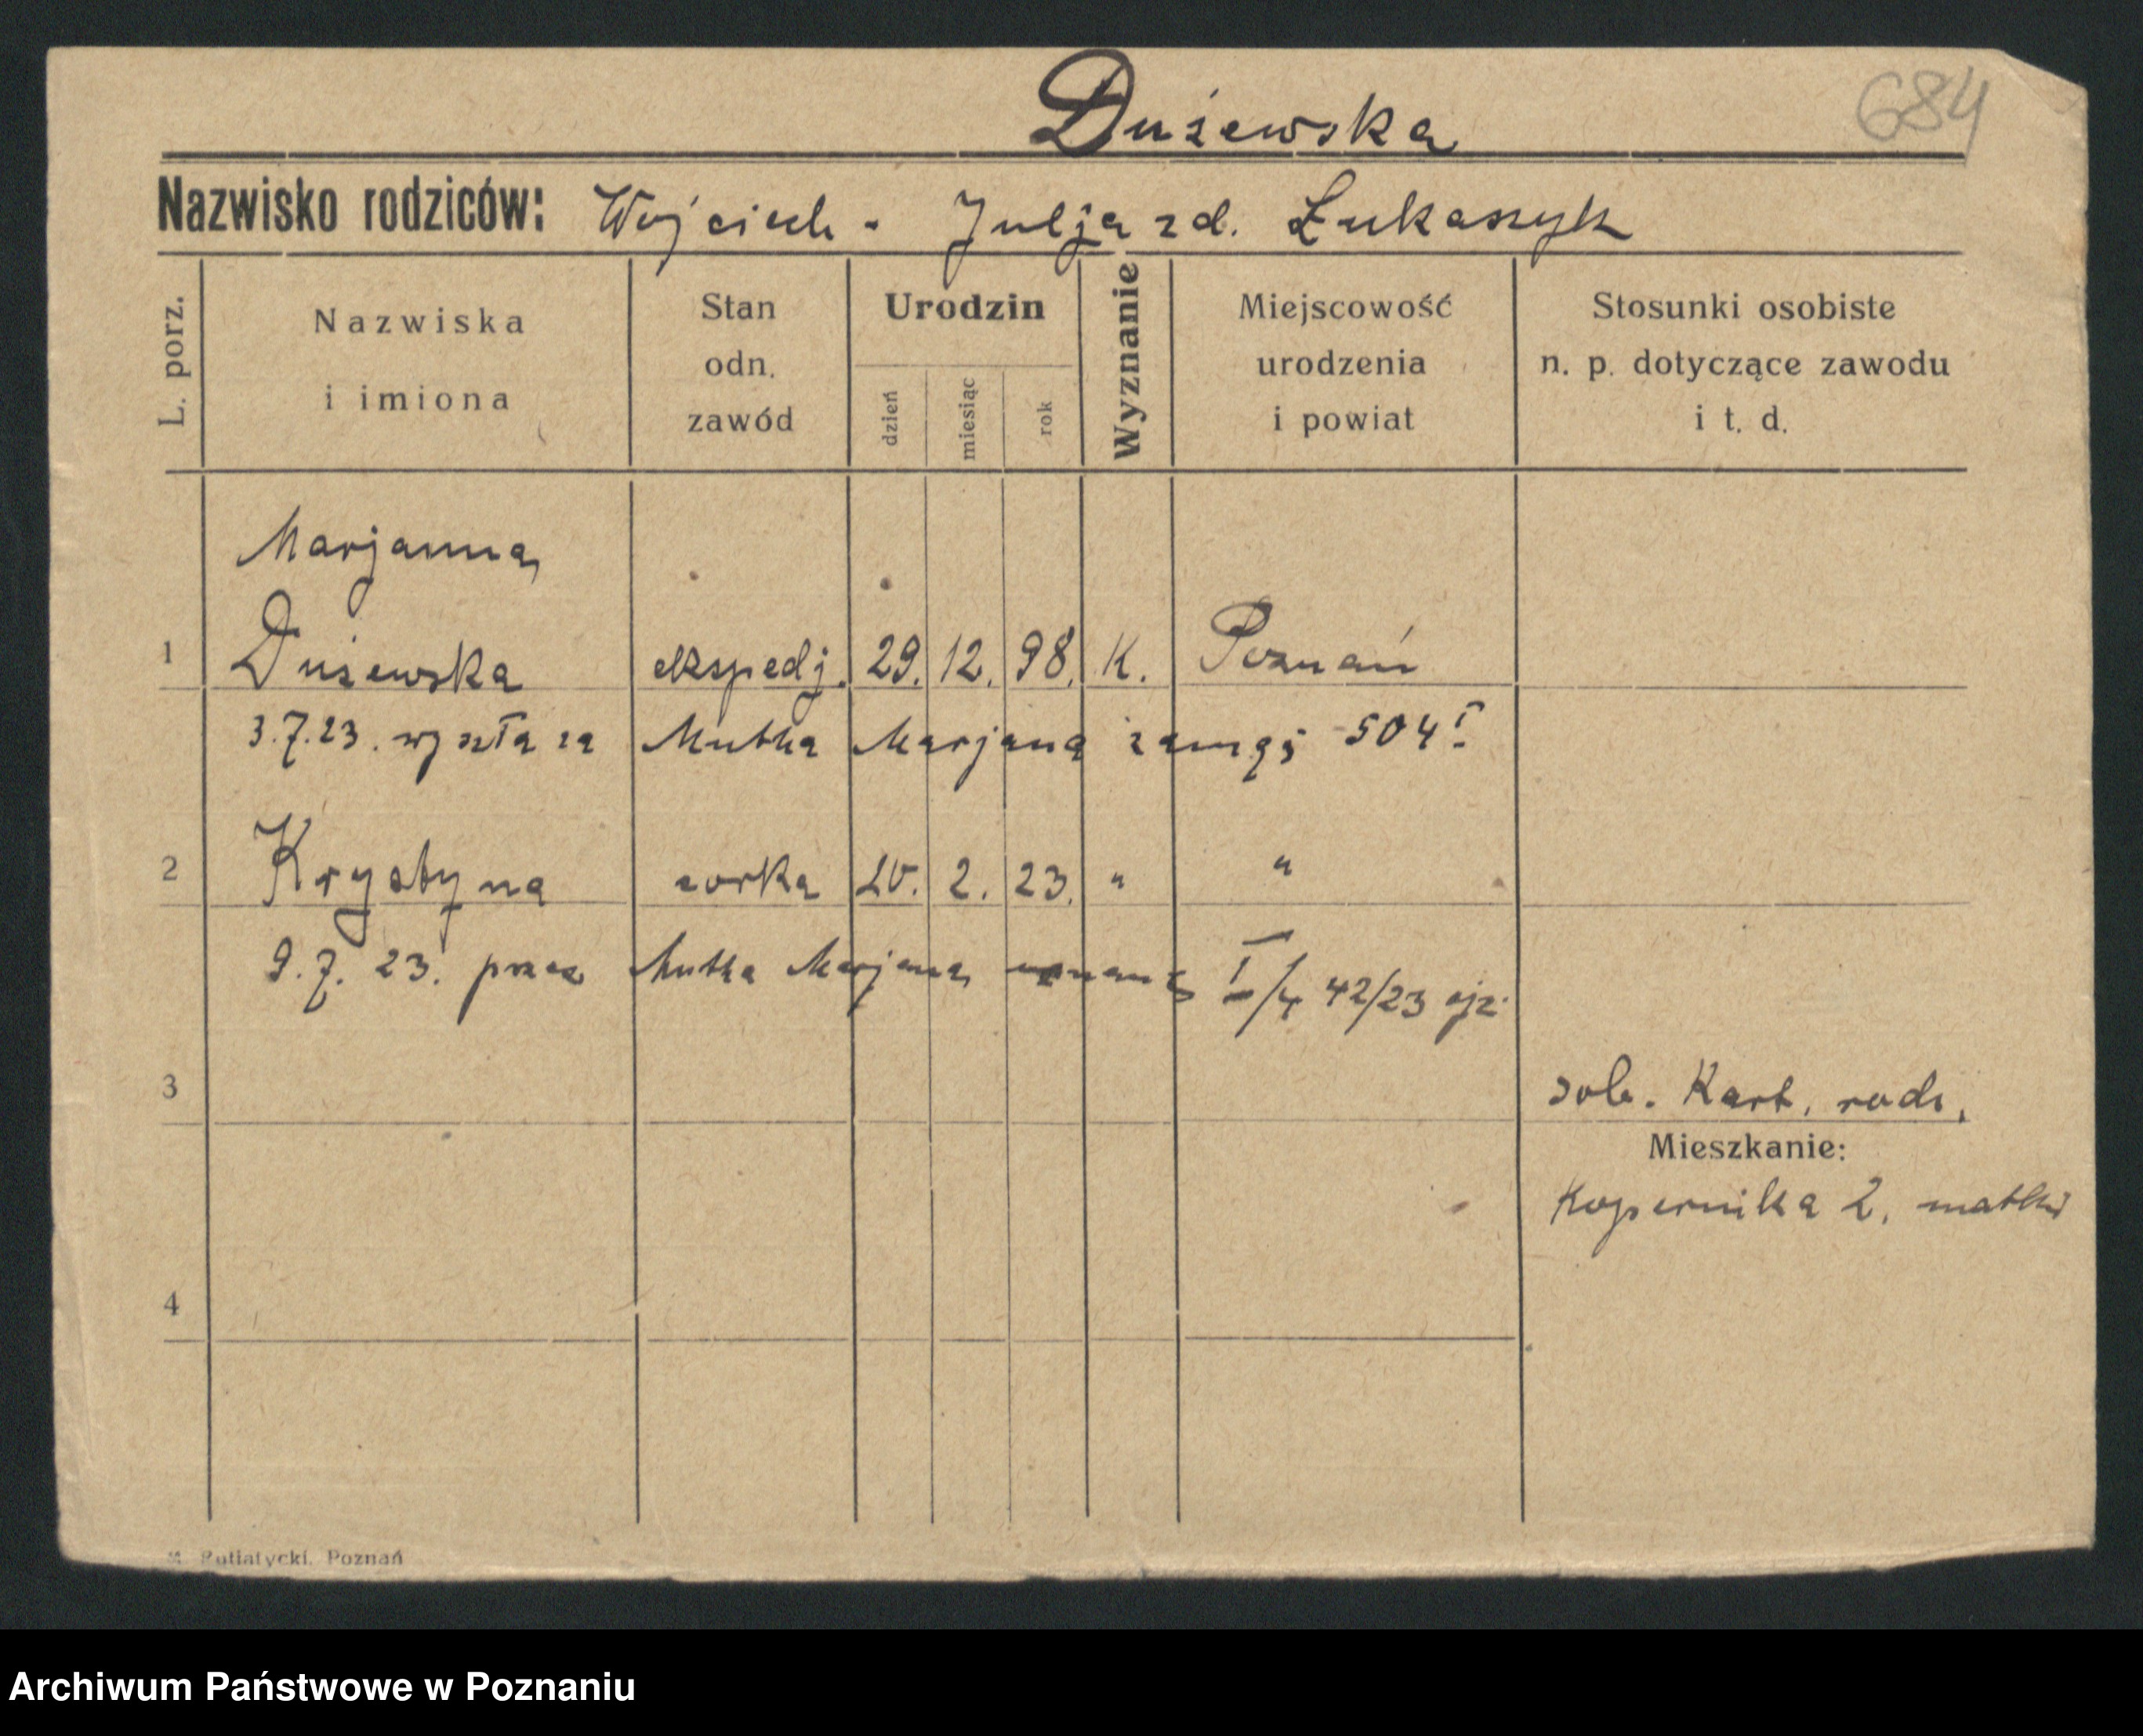 Dużewska 684
Nazwisko rodziców: Wojciech - Julja zd. Łukaszyk
L. porz.
Nazwiska i imiona
Stan odn. zawód
Urodzin
dzień
miesiąc
rok
Wyznanie
Miejscowość urodzenia i powiat
Stosunki osobiste n. p. dotyczące zawodu i t. d.
Marjanna
1 Dużewska ekspedj. 29. 12. 98. K. Poznań
3.7.23. wyszła za Mutka Marjana zamąż 504 I.
2 Krystyna corka 20. 2. 23. " "
9.7.23. przez Mutka Marjana uznana 42/23
3 zob. Kart. rodz.
Mieszkanie:
Kopernika 2, matki
4
Poznań
Archiwum Państwowe w Poznaniu